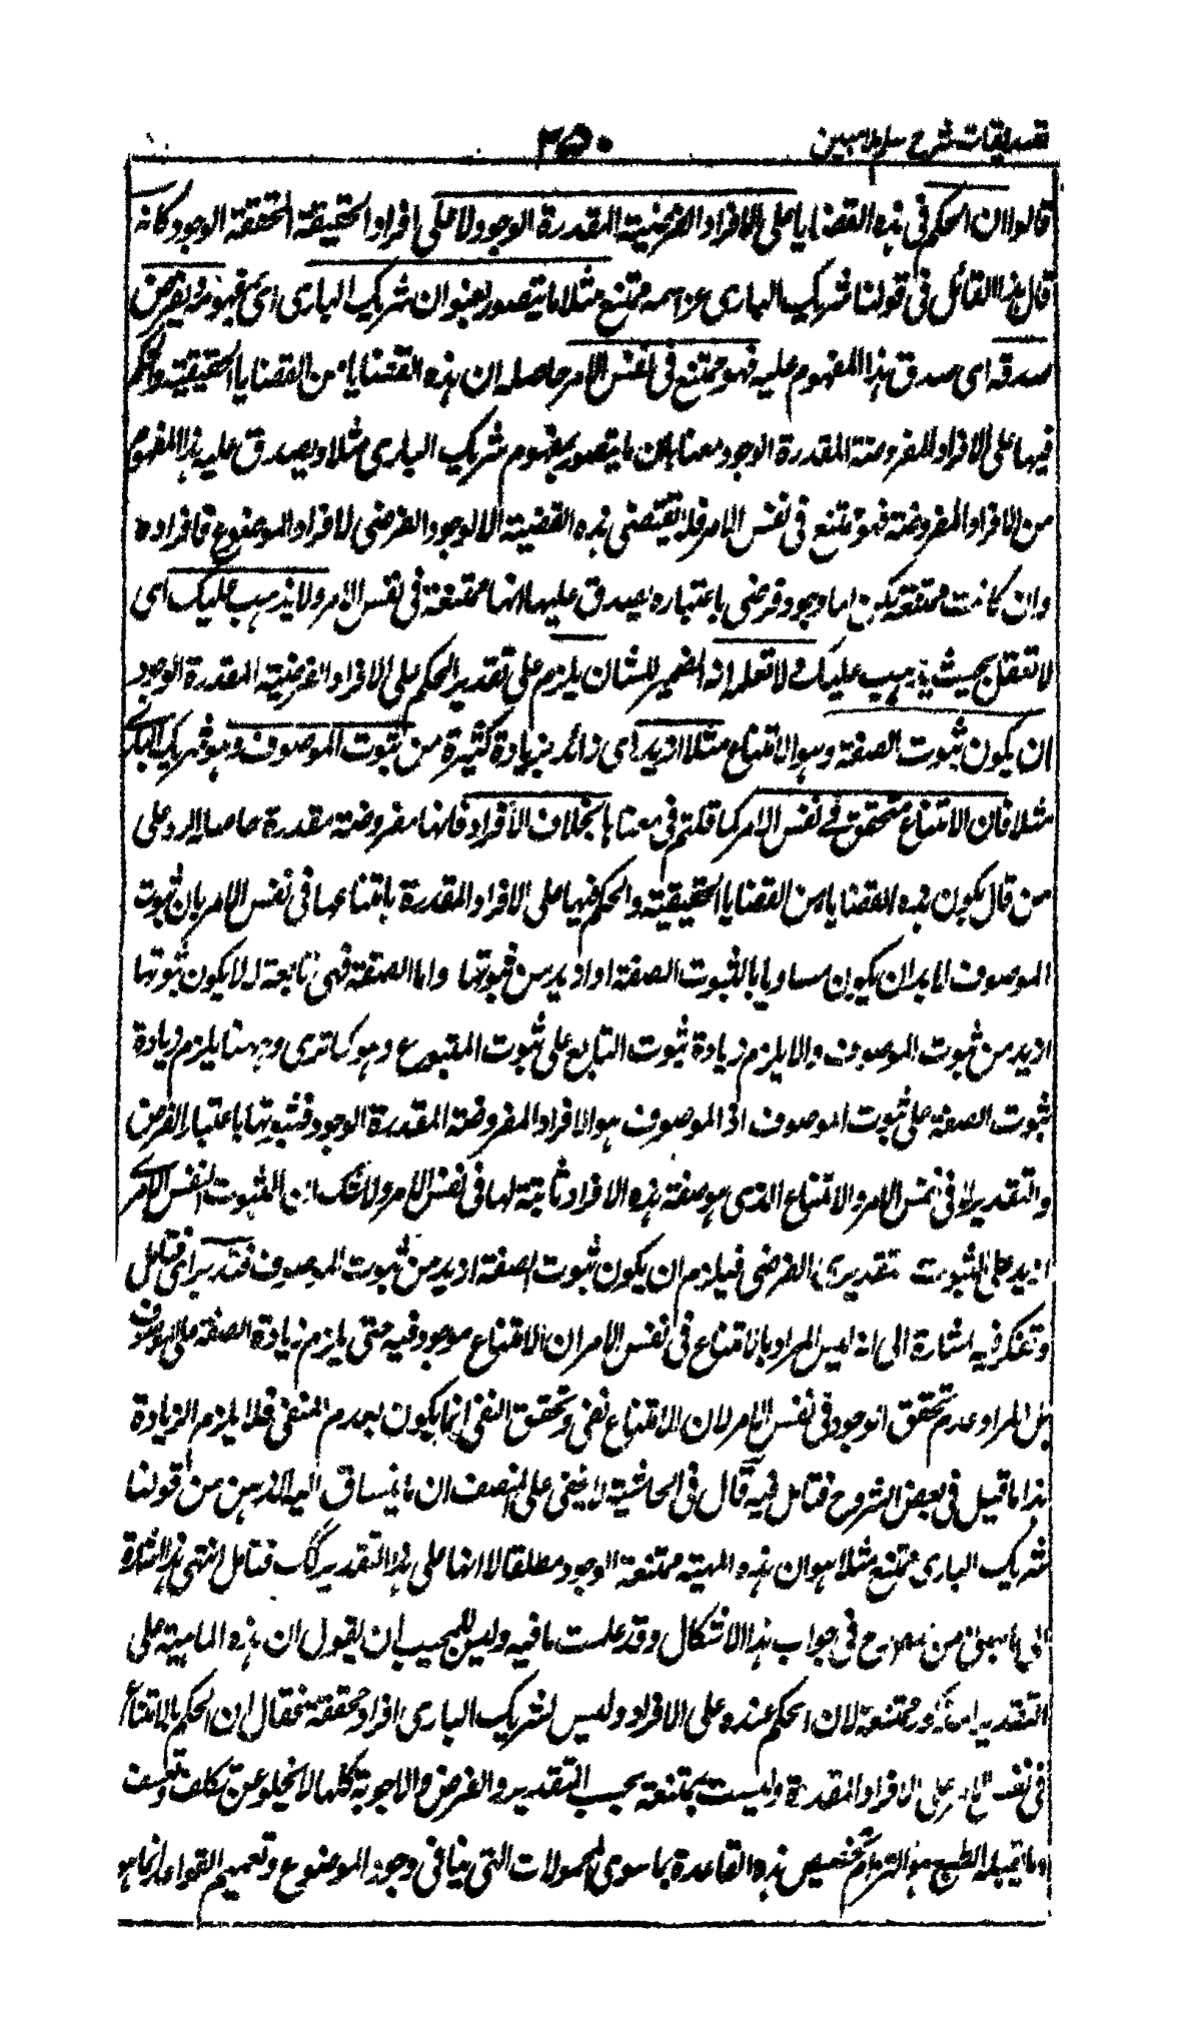 تصديقات شرح سلم ملا مبين
٢٥٠
قالوا ان الحكم فى هذه القضايا على الافراد الفرضية المقدرة الوجود لا على افراد الحقيقة المحققة الوجود كانه
قال هذا القائل فى قولنا شريك البارى عز اسمه ممتنع مثلا ما يتصور بعنوان شريك البارى اى بمفهومه ويفرض
صدقه اى صدق هذا المفهوم عليه فهو ممتنع فى نفس الامر حاصله ان هذه القضايا من القضايا الحقيقية والحكم
فيها على الافراد المفروضة المقدرة الوجود معناه ان ما يتصور بمفهوم شريك البارى مثلا ويصدق عليه هذا المفهوم
من الافراد المفروضة فهو ممتنع فى نفس الامر فلا يقتضى هذه القضية الا الوجود الفرضى لافراد الموضوع فافراده
وان كانت ممتنعة يكون لها وجود فرضى باعتباره يصدق عليها انها ممتنعة فى نفس الامر ولا يذهب عليك اى
لا تغفل بحيث يذهب عليك ولا تعلمه انه الضمير للشان يلزم على تقدير الحكم على الافراد الفرضية المقدرة الوجود
ان يكون ثبوت الصفة وهو الامتناع مثلا ازيد اى زائد بزيادة كثيرة من ثبوت الموصوف وهو شريك البارى
مثلا فان الامتناع متحقق فى نفس الامر كما قلتم فى معناه بخلاف الافراد فانها مفروضة مقدرة حاصله الرد على
من قال بكون هذه القضايا من القضايا الحقيقية والحكم فيها على الافراد المقدرة بامتناعها فى نفس الامر بان ثبوت
الموصوف لا بد ان يكون مساويا بالثبوت الصفة او ازيد من ثبوتها واما الصفة فهى تابعة له لا يكون ثبوتها
ازيد من ثبوت الموصوف والا يلزم زيادة ثبوت التابع على ثبوت المتبوع وهو كما ترى وههنا يلزم زيادة
ثبوت الصفة على ثبوت الموصوف اذ الموصوف هو الافراد المفروضة المقدرة الوجود فثبوتها باعتبار الفرض
والتقدير لا فى نفس الامر والامتناع الذى هو صفة هذه الافراد ثابتة لها فى نفس الامر ولا شك ان الثبوت النفس الامرى
ازيد على الثبوت تقديرى الفرضى فيلزم ان يكون ثبوت الصفة ازيد من ثبوت الموصوف فتدبر اى فتامل
وتفكر فيه اشارة الى انه ليس المراد بالامتناع فى نفس الامر ان الامتناع موجود فيه حتى يلزم زيادة الصفة على الموصوف
بل المراد عدم تحقق الوجود فى نفس الامر لان الامتناع نفى وتحقق النفى انما يكون بعدم المنفى فلا يلزم الزيادة
هذا ما قيل فى بعض الشروح فتامل فيه قال فى الحاشية لا يخفى على المنصف ان ما ينساق اليه الذهن من قولنا
شريك البارى ممتنع مثلا هو ان هذه المهية ممتنعة الوجود مطلقا لا انها على هذا التقدير كذلك فتامل انتهى هذا اشارة
الى ما سبق من فى جواب هذا الاشكال وقد علمت ما فيه وليس للمجيب ان يقول ان هذه الماهية على
التقدير المذكور ممتنعة لان الحكم عنده على الافراد وليس لشريك البارى افراد محققة فقال ان الحكم بالامتناع
فى نفس الامر على الافراد المقدرة وليست بممتنعة بحسب التقدير والفرض والاجوبة كلها لا يخلو عن تكلف وتعسف
وما يقبله الطبع هو التزام تخصيص هذه القاعدة بما سوى المحمولات التى ينافى وجود الموضوع وتعميم القواعد انما هو